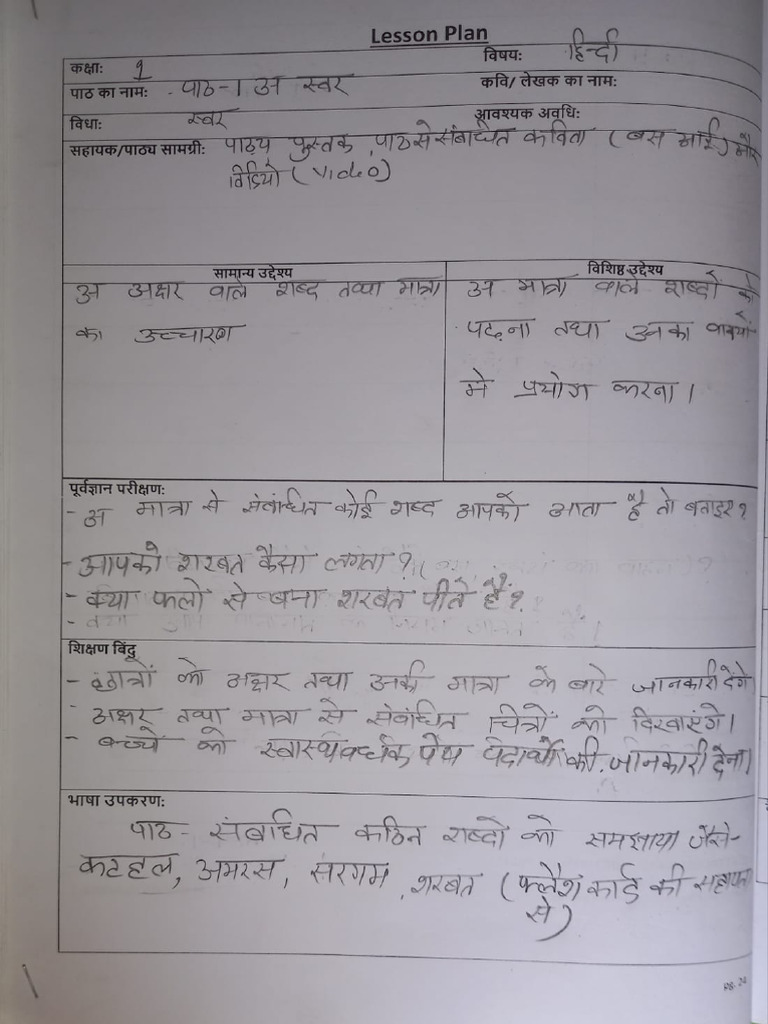 Lesson Plan
कक्षा: 1 विषय: हिन्दी
पाठ का नाम: पाठ-1 अ स्वर कवि/ लेखक का नाम:
विधा: स्वर आवश्यक अवधि:
सहायक/पाठ्य सामग्री: पाठ्य पुस्तक, पाठ से संबंधित कविता (बस आई) और
विडियो (Video)
सामान्य उद्देश्य विशिष्ठ उद्देश्य
अ अक्षर वाले शब्द तथा मात्रा
का उच्चारण
अ मात्रा वाले शब्दों को
पढ़ना तथा उनका वाक्यों
मे प्रयोग करना।
पूर्वज्ञान परीक्षण:
- अ मात्रा से संबंधित कोई शब्द आपको आता है तो बताइए?
- आपको शरबत कैसा लगता?
- क्या फलो से बना शरबत पीते हैं?
शिक्षण बिंदु
- छात्रों को अक्षर तथा उनकी मात्रा के बारे जानकारी देंगे
- अक्षर तथा मात्रा से संबंधित चित्रों को दिखाएंगे।
- बच्चें को स्वास्थवर्धक पेय पदार्थो की जानकारी देना।
भाषा उपकरण:
पाठ - संबधित कठिन शब्दो को समझाया जैसे-
कटहल, अमरस, सरगम, शरबत (फ्लैश कार्ड की सहायता
से)